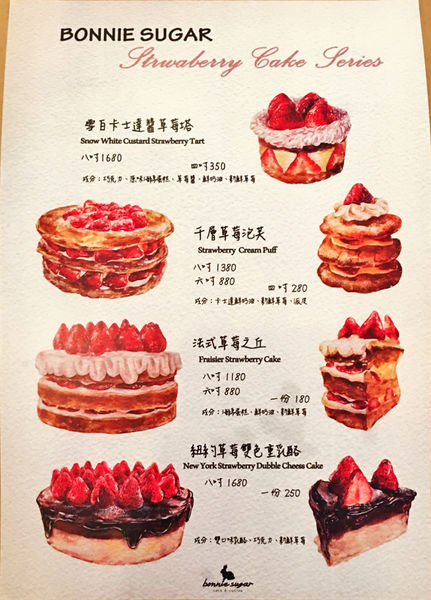 BONNIE SUGAR
Strwaberry Cake Series
雪白卡士達醬草莓塔
Snow White Custard Strawberry Tart
八吋1680
四吋350
成分：巧克力、原味海綿蛋糕、草莓醬、鮮奶油、新鮮草莓
千層草莓泡芙
Strawberry Cream Puff
八吋 1380
六吋 880
四吋 280
成分：卡士達鮮奶油、新鮮草莓、派皮
法式草莓之丘
Fraisier Strawberry Cake
八吋 1180
六吋 880
一份 180
成分：海綿蛋糕、鮮奶油、新鮮草莓
紐約草莓雙色重乳酪
New York Strawberry Dubble Cheess Cake
八吋 1680
一份 250
成分：雙口味乳酪、巧克力、新鮮草莓
bonnie sugar